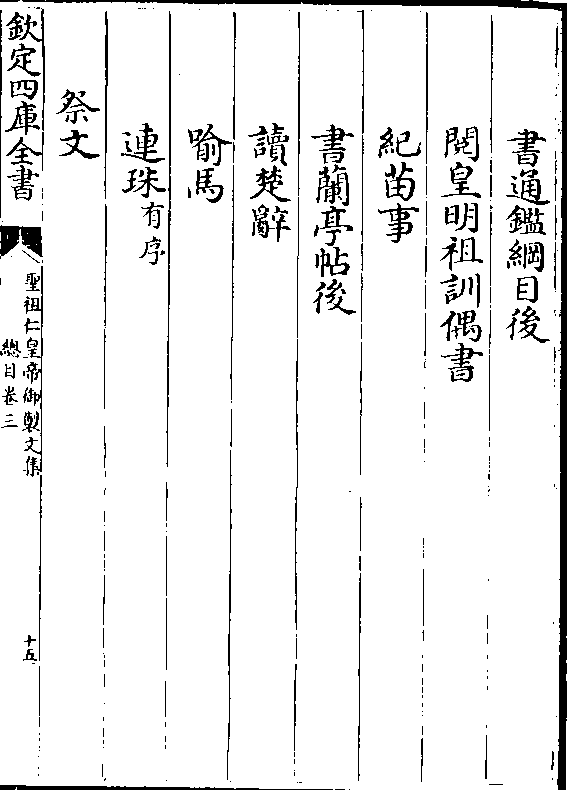 書通鑑綱目後
閱皇明祖訓偶書
紀苗事
書蘭亭帖後
讀楚辭
喻馬
連珠有序
祭文
欽定四庫全書
聖祖仁皇帝御製文集
總目卷三
十五